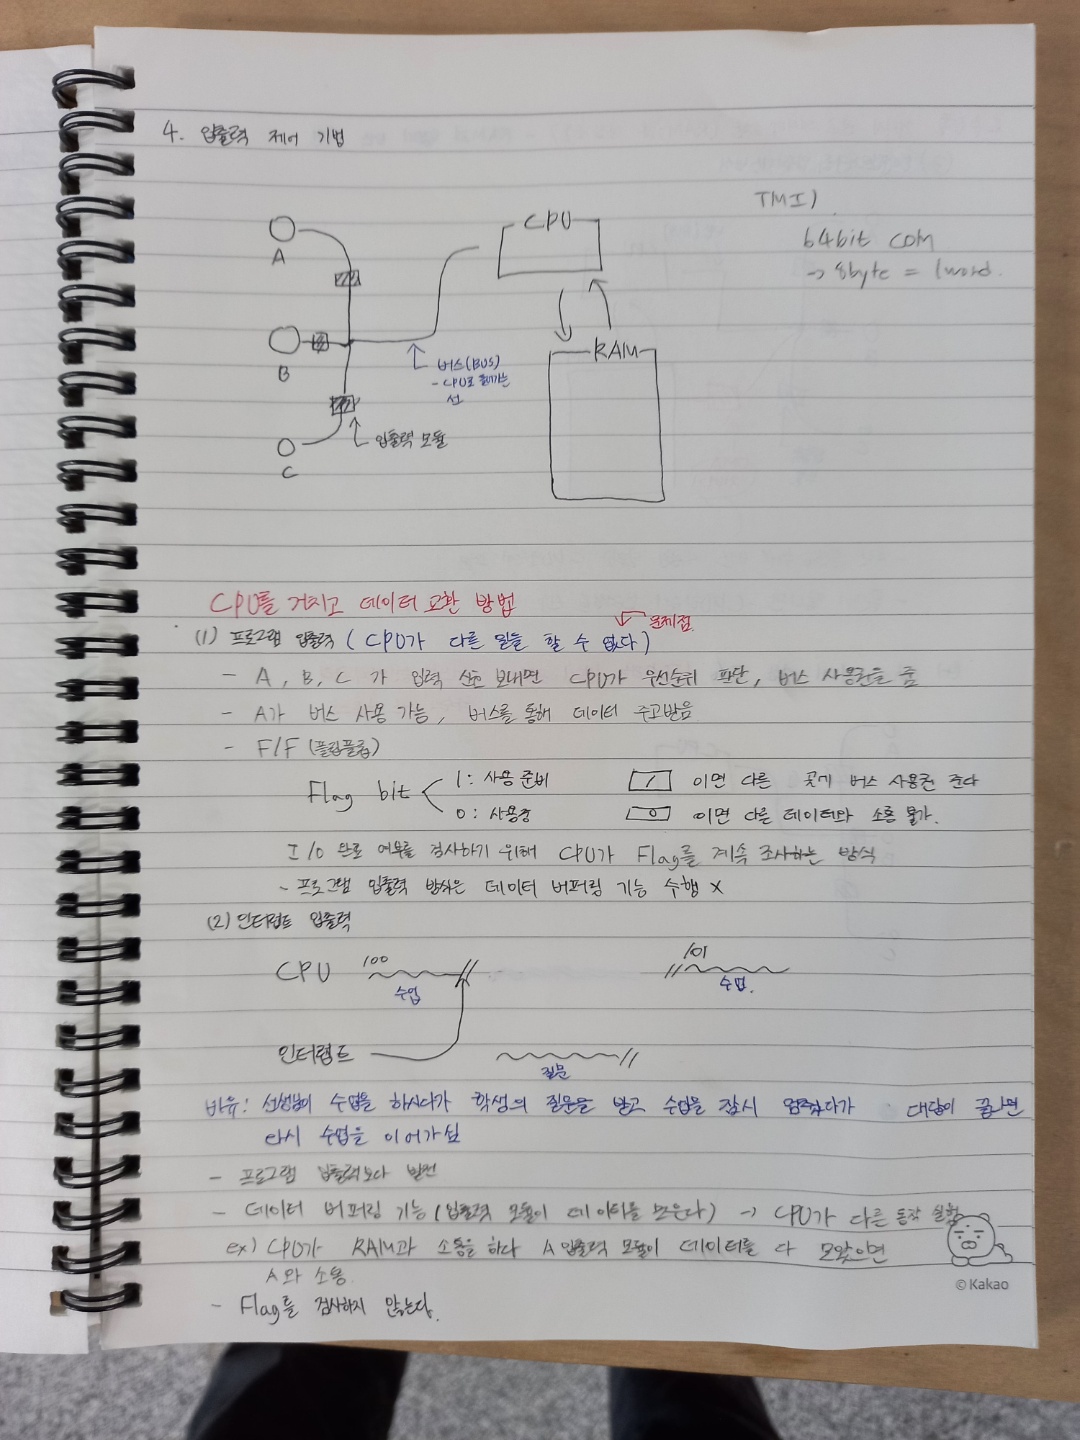 4. 입출력 제어 기법
TMI)
64bit com
→ 8byte = 1word.
CPU
A
RAM
B
버스(BUS)
- CPU로 들어가는
선
입출력 모듈
C
CPU를 거치고 데이터 교환 방법
문제점
(1) 프로그램 입출력 (CPU가 다른 일을 할 수 없다)
- A, B, C 가 입력 신호 보내면 CPU가 우선순위 판단, 버스 사용권을 줌
- A가 버스 사용 가능, 버스를 통해 데이터 주고받음
- F/F (플립플롭)
Flag bit
1: 사용 준비
1 이면 다른 곳에 버스 사용권 준다
0: 사용중
0 이면 다른 데이터와 소통 불가.
I/O 완료 여부를 검사하기 위해 CPU가 Flag를 계속 조사하는 방식
- 프로그램 입출력 방식은 데이터 버퍼링 기능 수행 X
(2) 인터럽트 입출력
CPU 100 101
수업 수업.
인터럽트
질문
비유: 선생님이 수업을 하시다가 학생의 질문을 받고 수업을 잠시 멈추었다가 대답이 끝나면
다시 수업을 이어가심
- 프로그램 입출력보다 발전
- 데이터 버퍼링 기능 (입출력 모듈이 데이터를 모은다) → CPU가 다른 동작 실행
ex) CPU가 RAM과 소통을 하다 A 입출력 모듈이 데이터를 다 모았으면
A와 소통.
- Flag를 검사하지 않는다.
© Kakao